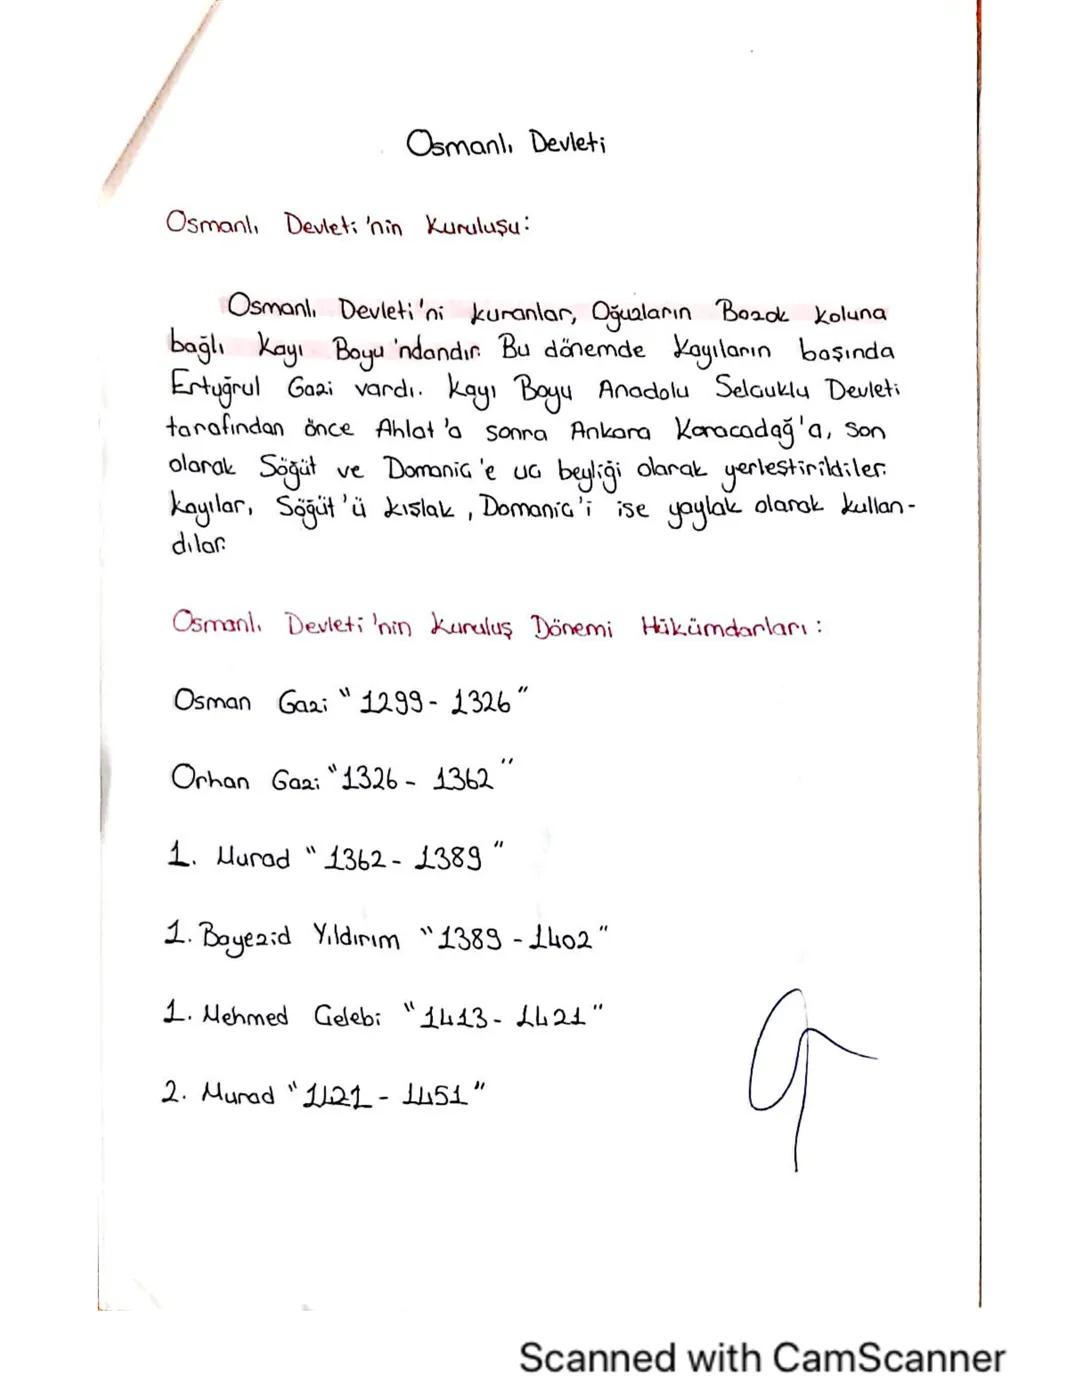 Osmanlı Devleti
Osmanlı Devleti'nin Kuruluşu:
Osmanlı Devleti'ni kuranlar, Oğuzların Bozok koluna
bağlı Kayı Boyu'ndandır. Bu dönemde Kayıların başında
Ertuğrul Gazi vardı. Kayı Boyu Anadolu Selçuklu Devleti
tarafından önce Ahlat'a sonra Ankara Karacadağ'a, son
olarak Söğüt ve Domaniç'e uc beyliği olarak yerleştirildiler.
Kayılar, Söğüt'ü kışlak, Domaniç'i ise yaylak olarak kullan-
dılar.
Osmanlı Devleti'nin Kuruluş Dönemi Hükümdarları:
Osman Gazi "1299-1326"
Orhan Gazi "1326-1362"
1. Murad "1362-1389"
1. Bayezid Yıldırım "1389-1402"
1. Mehmed Çelebi "1413-1421"
2. Murad "1421-1451"
Scanned with CamScanner